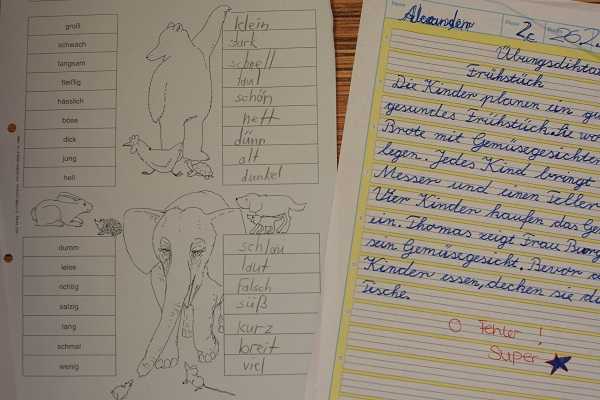 groß
schwach
langsam
fleißig
hässlich
böse
dick
jung
hell
klein
stark
schnell
faul
schön
nett
dünn
alt
dunkel
dumm
leise
richtig
salzig
lang
schmal
wenig
schlau
laut
falsch
süß
kurz
breit
viel
Alexander
2c
Übungsdiktat
Frühstück
Die Kinder planen ein
gesundes Frühstück. Sie
Brote mit Gemüsegesichten
legen. Jedes Kind bringt
Messer und einen Teller
Vier Kinder kaufen das
ein. Thomas zeigt Frau
sein Gemüsegesicht. Bevor
Kinder essen, decken sie
Tische.
0 Fehler!
Super